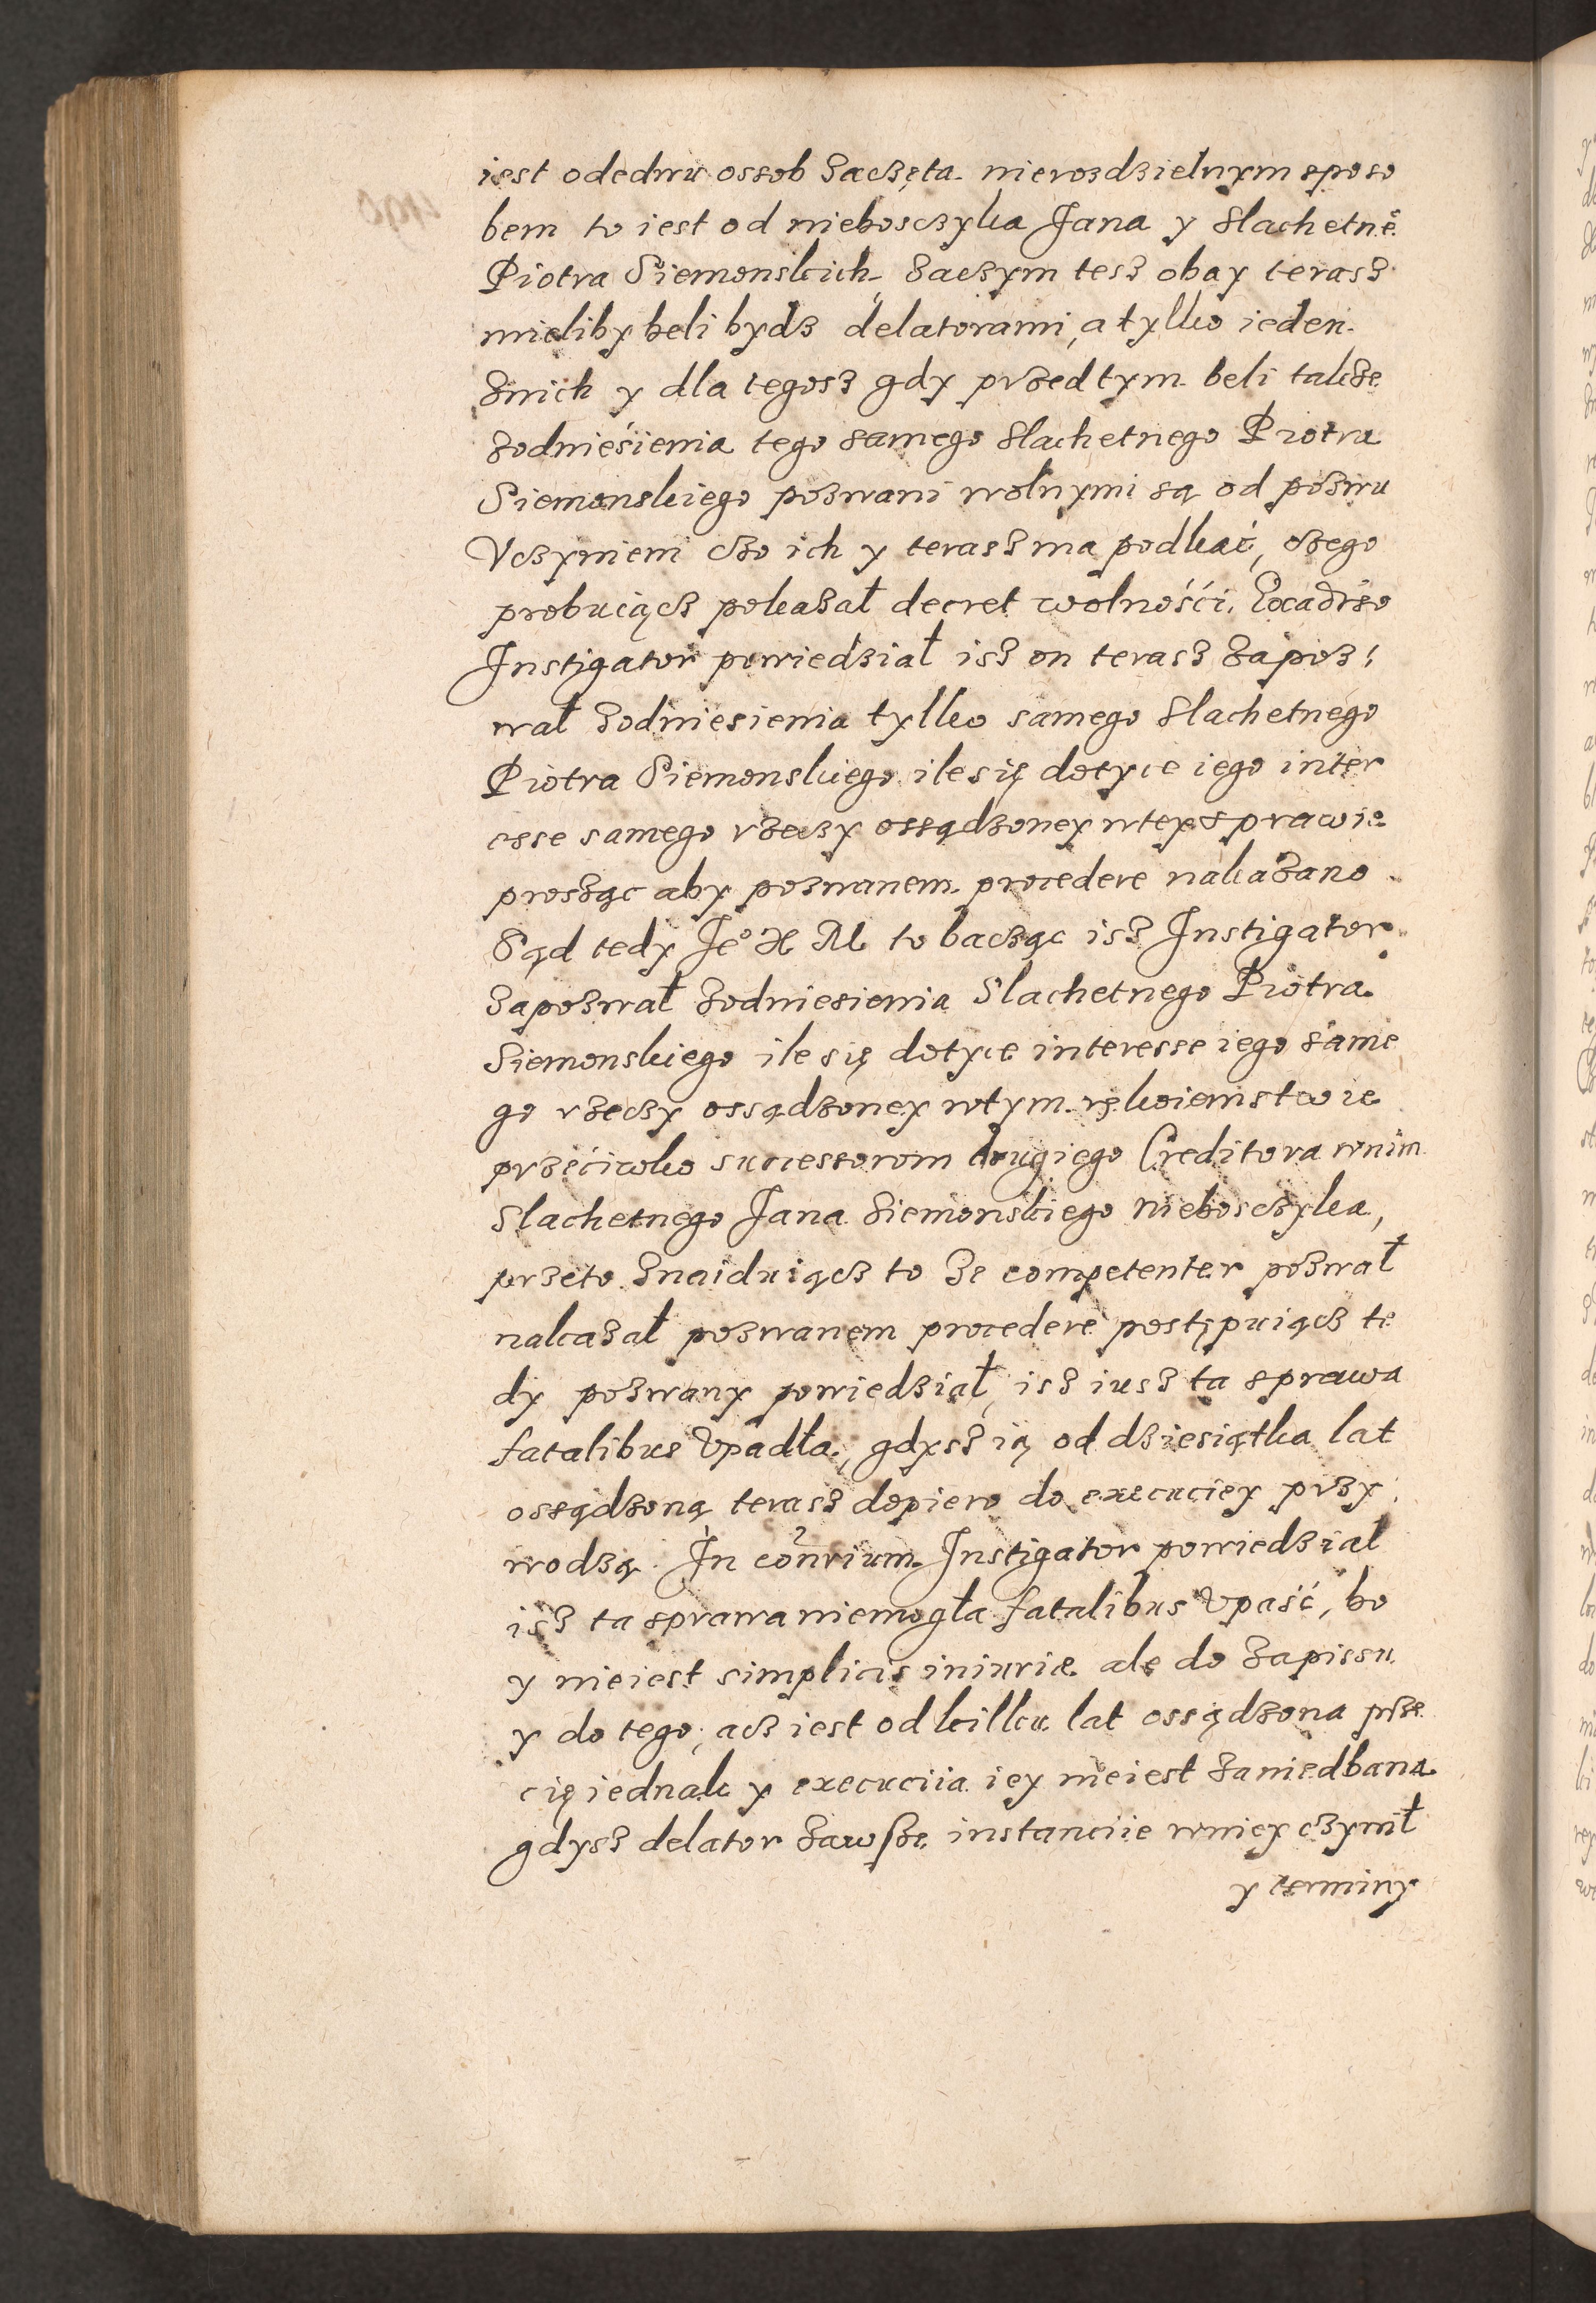 iest odedwu ossob zaczęta nierozdzielnym sposo
bem to iest od nieboszczyka Jana y slachetne͞
Piotra Siemonskich, zaczym tesz obay terasz
mieliby beli bydz delatorami, a tylko ieden
znich y dla tegosz gdy przedtym beli takze
zodniesienia tego samego slachetnego Piotra
Siemonskiego pozwani wolnymi są od pozwu
Vczynieni czo ich y terasz ma podkać, czego
probuiącz pokazał decret wolności. E
Instigator powiedział isz on terasz zapoz:
wał zodniesienia tylko samego slachetnego
Piotra Siemonskiego ile się dotyce iego inter
esse samego rzeczy ossądzoney wtey sprawie
proszgc aby pozwanem procedere nakazano
Sąd tedy Je° X M to baczgc isz Instigator
zapozwał zodniesienia Slachetnego Piotra
Siemonskiego ile się dotyce interesse iego same
go rzeczy ossądzoney wtym rękoiemstwie
przeciwko successorom drugiego Creditora wnim
Slachetnego Jana Siemonskiego nieboszczyka,
przeto znaiduiącz to ze competenter pozwał
nakazał pozwanem procedere postępuiącz te
dy pozwany powiedział, isz iusz ta sprawa
fatalibus Vpadła, gdysz ią od dziesiątka lat
ossądzoną terasz dopiero do execuciey przy
wodzą. In con̄rium Instigator powiedział
isz ta sprawa niemogła fatalibus Vpaść, bo
y nieiest simplicis iniuriæ ale do zapissu
y do tego, acz iest od kilku lat ossądzona prze
cię iednak y execuciia iey nieiest zaniedbana
gdysz delator zawsze instanciie wniey czynił
y terminy